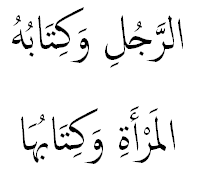 الرَّجُلِ وَكِتَابُهُ
المَرْأَةِ وَكِتَابُهَا